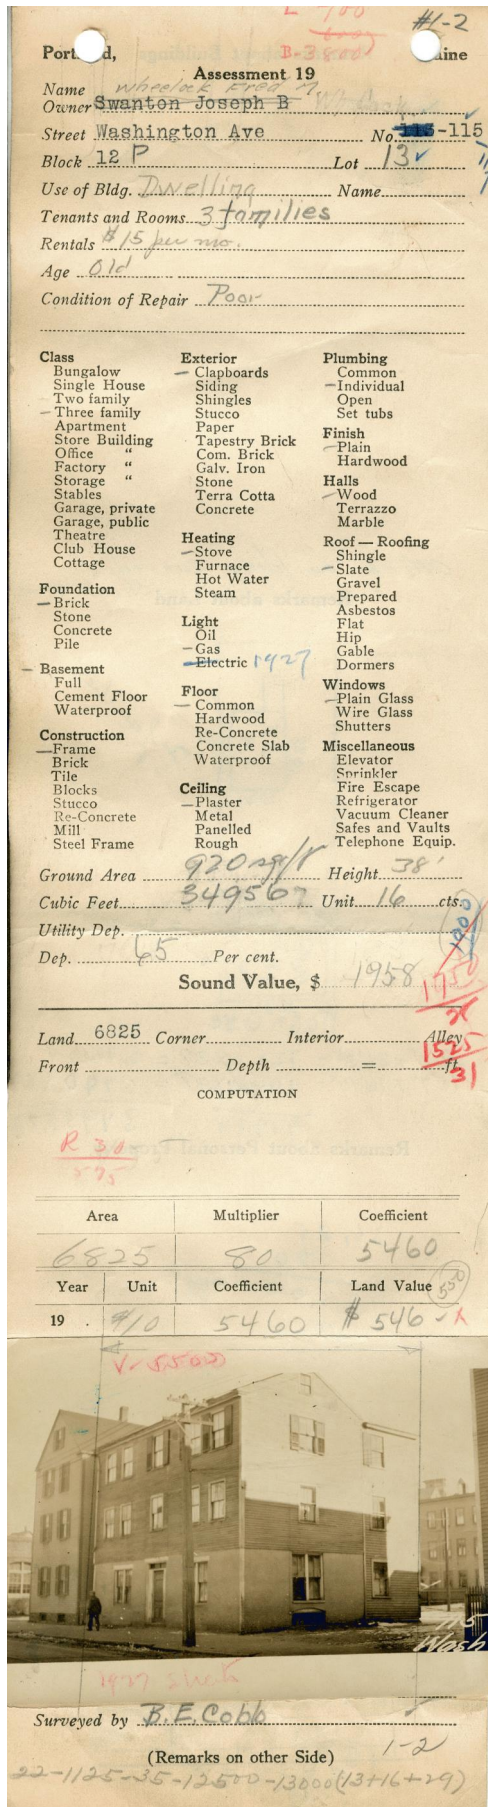 #1-2
L-700
B-3800
Portland, Maine
Assessment 19
Name Wheelock Fred M.
Owner Swanton Joseph B
Street Washington Ave No. 113-115
Block 12 P Lot 13
Use of Bldg. Dwelling Name
Tenants and Rooms 3 families
Rentals $15 per mo.
Age Old
Condition of Repair Poor
Class
Bungalow
Single House
Two family
– Three family
Apartment
Store Building
Office "
Factory "
Storage "
Stables
Garage, private
Garage, public
Theatre
Club House
Cottage
Foundation
– Brick
Stone
Concrete
Pile
– Basement
Full
Cement Floor
Waterproof
Construction
– Frame
Brick
Tile
Blocks
Stucco
Re-Concrete
Mill
Steel Frame
Exterior
– Clapboards
Siding
Shingles
Stucco
Paper
Tapestry Brick
Com. Brick
Galv. Iron
Stone
Terra Cotta
Concrete
Heating
– Stove
Furnace
Hot Water
Steam
Light
Oil
– Gas
– Electric 1927
Floor
– Common
Hardwood
Re-Concrete
Concrete Slab
Waterproof
Ceiling
– Plaster
Metal
Panelled
Rough
Plumbing
Common
– Individual
Open
Set tubs
Finish
– Plain
Hardwood
Halls
– Wood
Terrazzo
Marble
Roof — Roofing
Shingle
– Slate
Gravel
Prepared
Asbestos
Flat
Hip
Gable
Dormers
Windows
– Plain Glass
Wire Glass
Shutters
Miscellaneous
Elevator
Sprinkler
Fire Escape
Refrigerator
Vacuum Cleaner
Safes and Vaults
Telephone Equip.
Ground Area 920 sq/ft Height 38'
Cubic Feet 34956 Unit 16 cts.
Utility Dep.
Dep. 65 Per cent.
Sound Value, $ 1958
1750
Land 6825 Corner Interior Alley
1525
31
Front Depth = ft.
COMPUTATION
R 30
575
Area Multiplier Coefficient
6825 80 5460
Year Unit Coefficient Land Value 550
19 . #10 5460 $ 546
V-5500
115
Wash
Surveyed by B.E. Cobb
(Remarks on other Side) 1-2
22-1125-35-12500-13000(13+16+29)